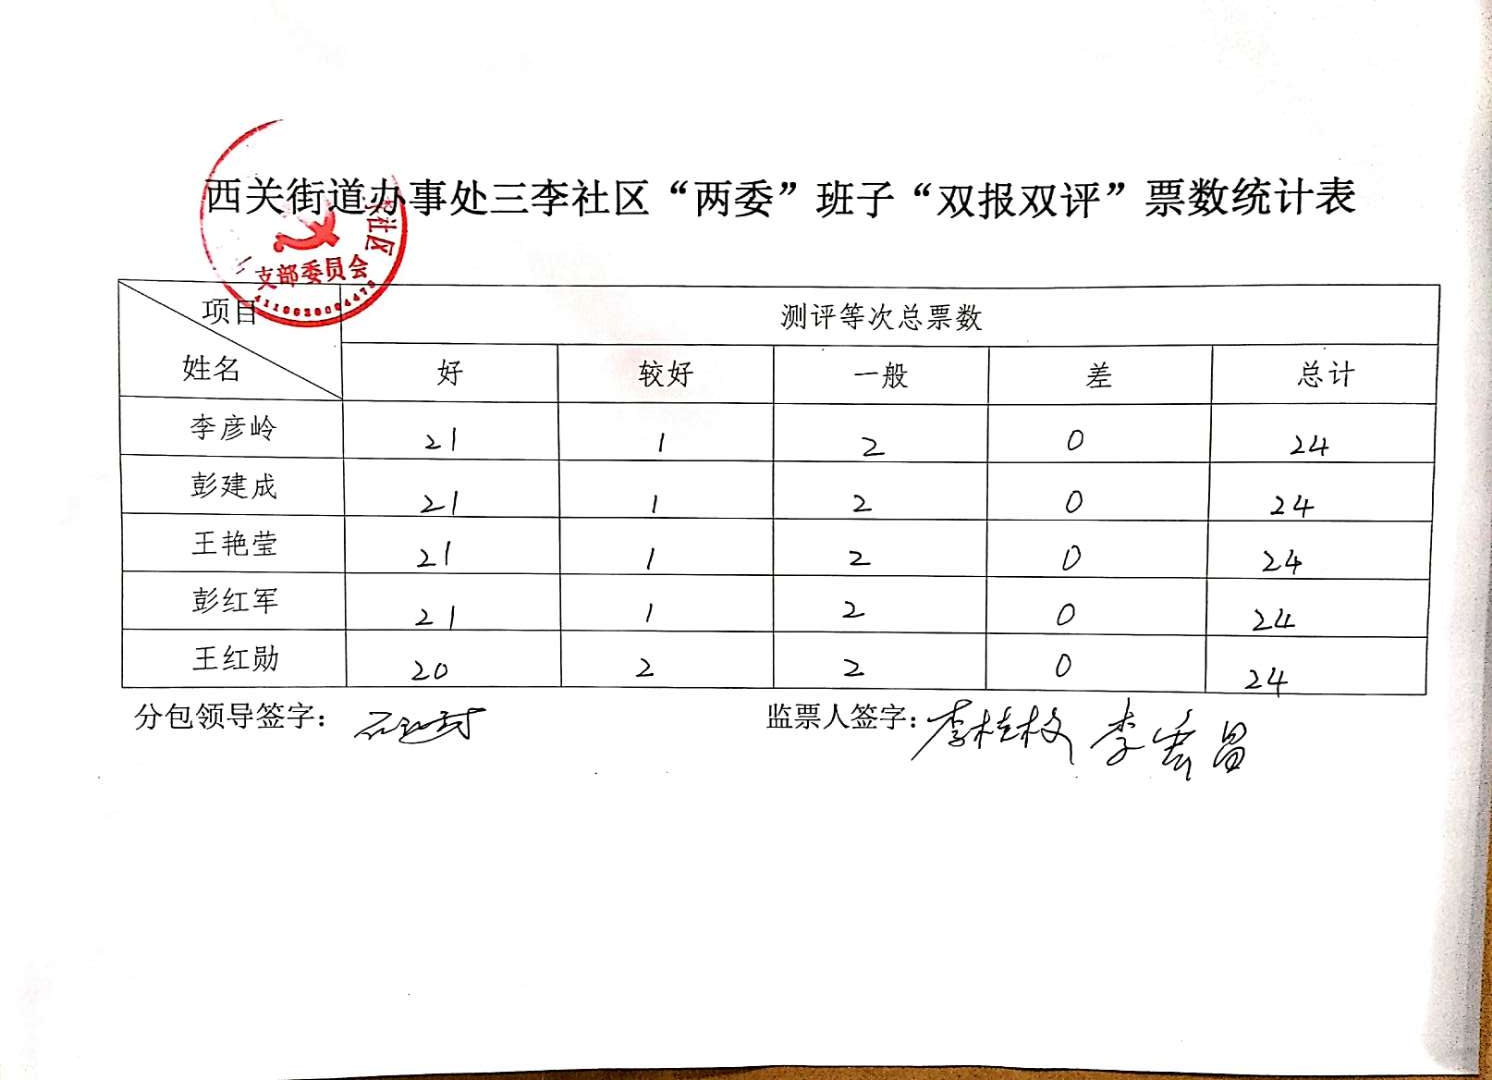 西关街道办事处三李社区“两委”班子“双报双评”票数统计表
社区
支部委员会
项目 测评等次总票数
姓名 好 较好 一般 差 总计
李彦岭 21 1 2 0 24
彭建成 21 1 2 0 24
王艳莹 21 1 2 0 24
彭红军 21 1 2 0 24
王红勋 20 2 2 0 24
分包领导签字： 监票人签字：李桂枝 李